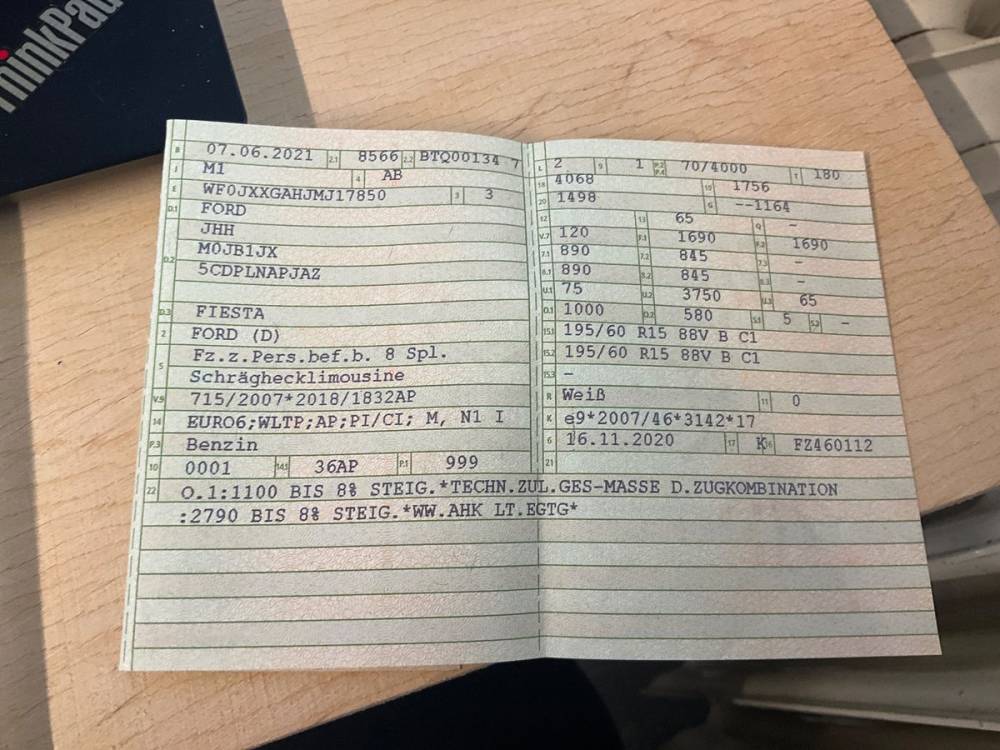 ThinkPad
B 07.06.2021 2.1 8566 2.2 BTQ00134 7
J M1 4 AB
E WF0JXXGAHJMJ17850 3 3
D.1 FORD
JHH
D.2 M0JB1JX
5CDPLNAPJAZ
D.3 FIESTA
2 FORD (D)
5 Fz.z.Pers.bef.b. 8 Spl.
Schräghecklimousine
V.9 715/2007*2018/1832AP
14 EURO6;WLTP;AP;PI/CI; M, N1 I
P.3 Benzin
10 0001 14.1 36AP P.1 999
L 2 9 1 P.2 P.4 70/4000 T 180
18 4068 19 1756
20 1498 G --1164
12 13 65 Q -
V.7 120 F.1 1690 F.2 1690
7.1 890 7.2 845 7.3 -
8.1 890 8.2 845 8.3 -
U.1 75 U.2 3750 U.3 65
O.1 1000 O.2 580 S.1 5 S.2 -
15.1 195/60 R15 88V B C1
15.2 195/60 R15 88V B C1
15.3 -
R Weiß 11 0
K e9*2007/46*3142*17
6 16.11.2020 17 K 16 FZ460112
21
22 O.1:1100 BIS 8% STEIG.*TECHN.ZUL.GES-MASSE D.ZUGKOMBINATION
:2790 BIS 8% STEIG.*WW.AHK LT.EGTG*